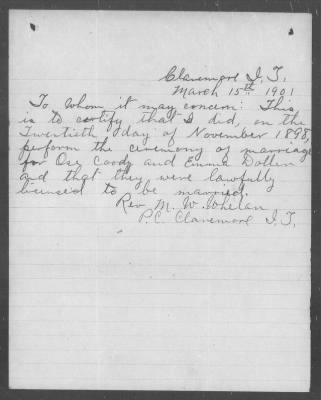 Claremore I.T.
March 15th 1901
To whom it may concern: This
is to certify that I did, on the
Twentieth day of November 1898,
perform the ceremony of marriage
for Osy Coody and Emma Dollin
and that they were lawfully
licensed to be married.
Rev. M. W. Whelan
P.C. Claremore I.T.